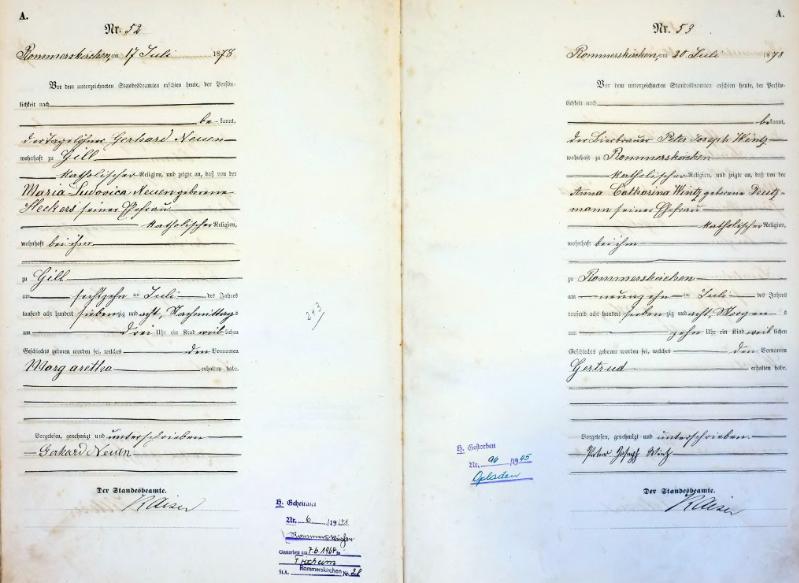 A.
Nr. 52
Rommerskirchen, am 17 Juli 1878
Vor dem unterzeichneten Standesbeamten erschien heute, der Persön-
lichkeit nach
be kannt,
der Tagelöhner Gerhard Neuen
wohnhaft zu Gill
katholischer Religion, und zeigte an, daß von der
Maria Ludovica Neuen geborene
Heckers seiner Ehefrau
katholischer Religion,
wohnhaft bei ihm
zu Gill
am sechszehn ten Juli des Jahres
tausend acht hundert sieben zig und acht, Nachmittags
um drei Uhr ein Kind weib lichen
Geschlechts geboren worden sei, welches den Vornamen
Margaretha erhalten habe.
Vorgelesen, genehmigt und unterschrieben
Gerhard Neuen
Der Standesbeamte.
Kaiser
243
H. Geheiratet
Nr. 6 /19
Rommerskirchen
Gestorben am 7.6.1964 in
St.A. Rommerskirchen Nr. 28
A.
Nr. 53
Rommerskirchen, am 20 Juli 1878
Vor dem unterzeichneten Standesbeamten erschien heute, der Persön-
lichkeit nach
bekannt,
der Bierbrauer Peter Joseph Wintz
wohnhaft zu Rommerskirchen
katholischer Religion, und zeigte an, daß von der
Anna Catharina Wintz geborene Deutz-
mann seiner Ehefrau
katholischer Religion,
wohnhaft bei ihm
zu Rommerskirchen
am neunzehn ten Juli des Jahres
tausend acht hundert sieben zig und acht, Morgens
zehn Uhr ein Kind weib lichen
Geschlechts geboren worden sei, welches den Vornamen
Gertrud erhalten habe.
Vorgelesen, genehmigt und unterschrieben
Peter Joseph Wintz
Der Standesbeamte.
Kaiser
H. Gestorben
Nr. 96 /1945
Opladen